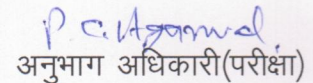 P. C. Agarwal
अनुभाग अधिकारी(परीक्षा)